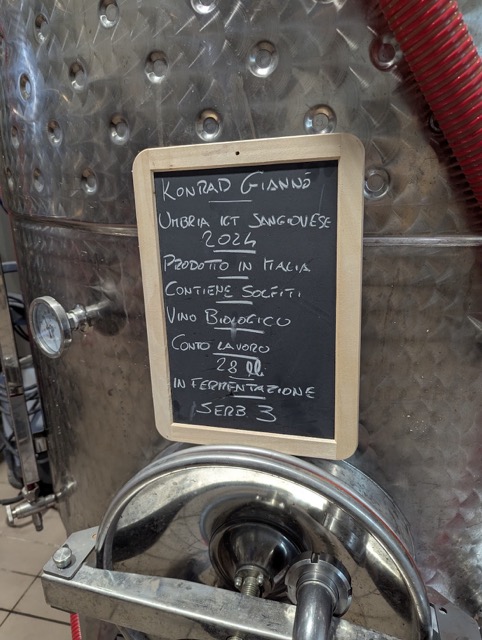 KONRAD GIANNÒ
UMBRIA IGT SANGIOVESE
2024
PRODOTTO IN ITALIA
CONTIENE SOLFITI
VINO BIOLOGICO
CONTO LAVORO
28
IN FERMENTAZIONE
SERB. 3